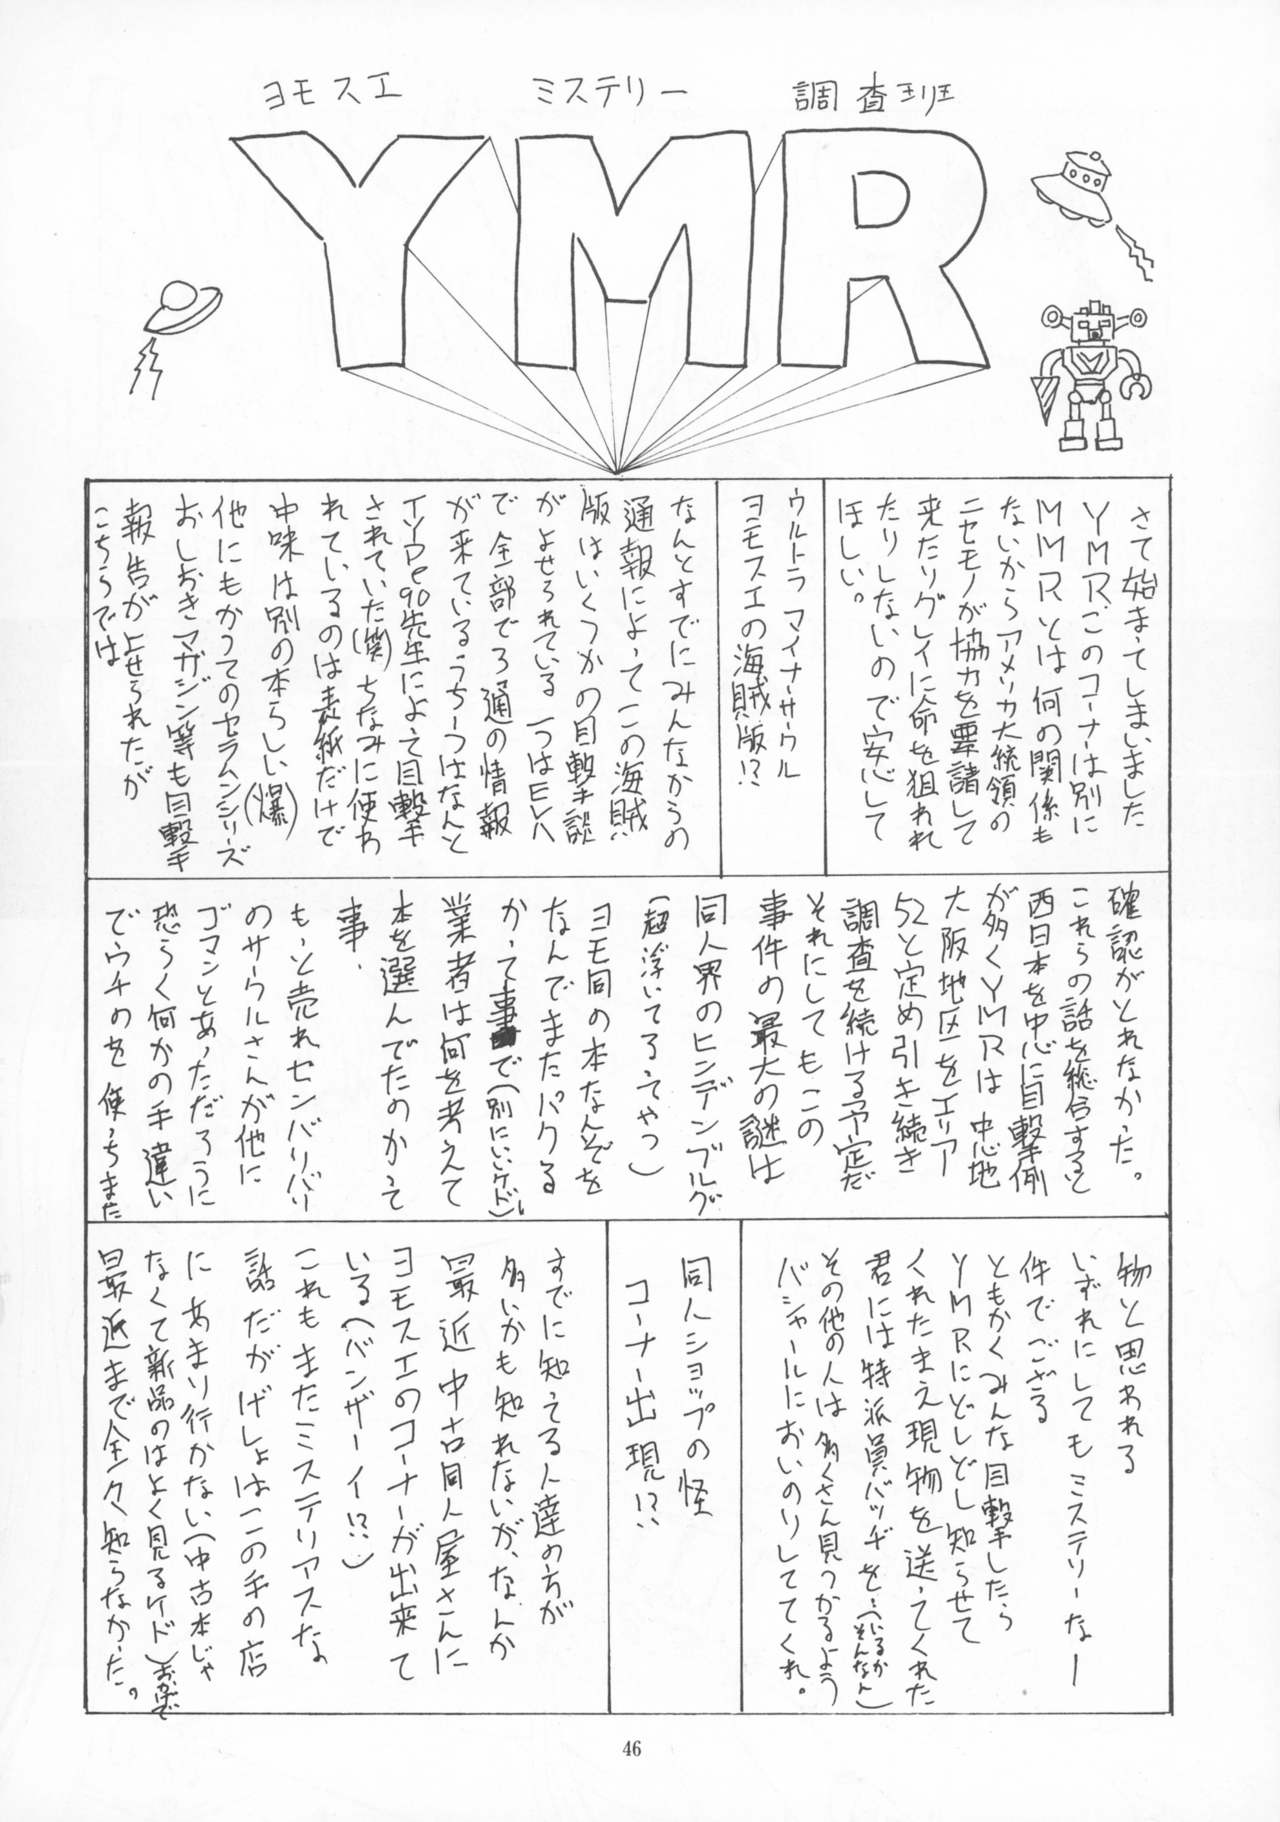 ヨモスエ ミステリー 調査班
YMR
さて始まってしまいました
YMR、このコーナーは別に
MMRとは何の関係も
ないからアメリカ大統領の
ニセモノが協力を要請して
来たりグレイに命を狙われ
たりしないので安心して
ほしい。
ウルトラ マイナーサークル
ヨモスエの海賊版!?
なんとすでにみんなからの
通報によってこの海賊
版はいくつかの目撃談
がよせられている 一つはEVA
で全部で3通の情報
が来ているうち一つはなんと
TYPe90先生によって目撃
されていた(笑)ちなみに使わ
れているのは表紙だけで
中味は別の本らしい(爆)
他にもかつてのセラムンシリーズ
おしおきマガジン等も目撃
報告がよせられたが
こちらでは
確認がとれなかった。
これらの話を総合すると
西日本を中心に目撃例
が多くYMRは 中心地
大阪地区をエリア
52と定め引き続き
調査を続ける予定だ
それにしてもこの
事件の最大の謎は
同人界のヒンデンブルグ
(超浮いてるってやつ)
ヨモ同の本なんぞを
なんでまたパクる
かって事で(別にいいケド)
業者は何を考えて
本を選んでたのかって
事、
もっと売れセンバリバリ
のサークルさんが他に
ゴマンとあっただろうに
恐らく何かの手違い
でウチのを使っちまった
物と思われる
いずれにしてもミステリーなー
件でござる
ともかくみんな目撃したら
YMRにどしどし知らせて
くれたまえ現物を送ってくれた
君には特派員バッヂを…(いるかそんなん)
その他の人は多くさん見つかるよう
バシャールにおいのりしててくれ。
同人ショップの怪
コーナー出現!?
すでに知ってる人達の方が
多いかも知れないが、なんか
最近 中古同人屋さんに
ヨモスエのコーナーが出来て
いる(バンザーイ!?)
これもまたミステリアスな
話だがげしょはこの手の店
にあまり行かない(中古本じゃ
なくて新品のはよく見るケド)おかげで
最近まで全々知らなかった。
46